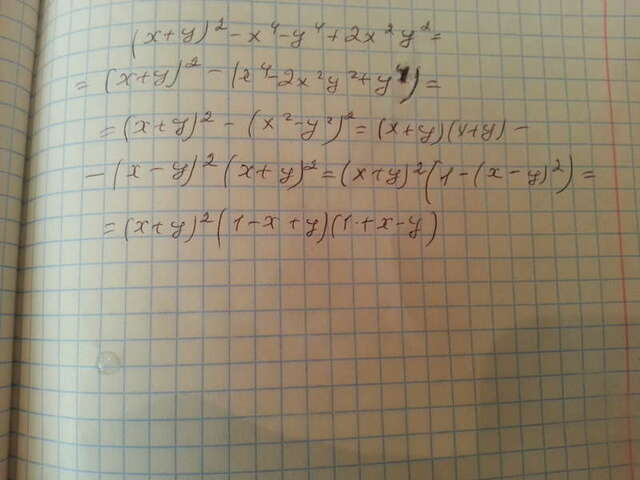 (x+y)² - x⁴ - y⁴ + 2x²y² =
= (x+y)² - (x⁴ - 2x²y² + y⁴) =
= (x+y)² - (x² - y²)² = (x+y)(x+y) -
- (x-y)²(x+y)² = (x+y)²(1 - (x-y)²) =
= (x+y)²(1 - x + y)(1 + x - y)